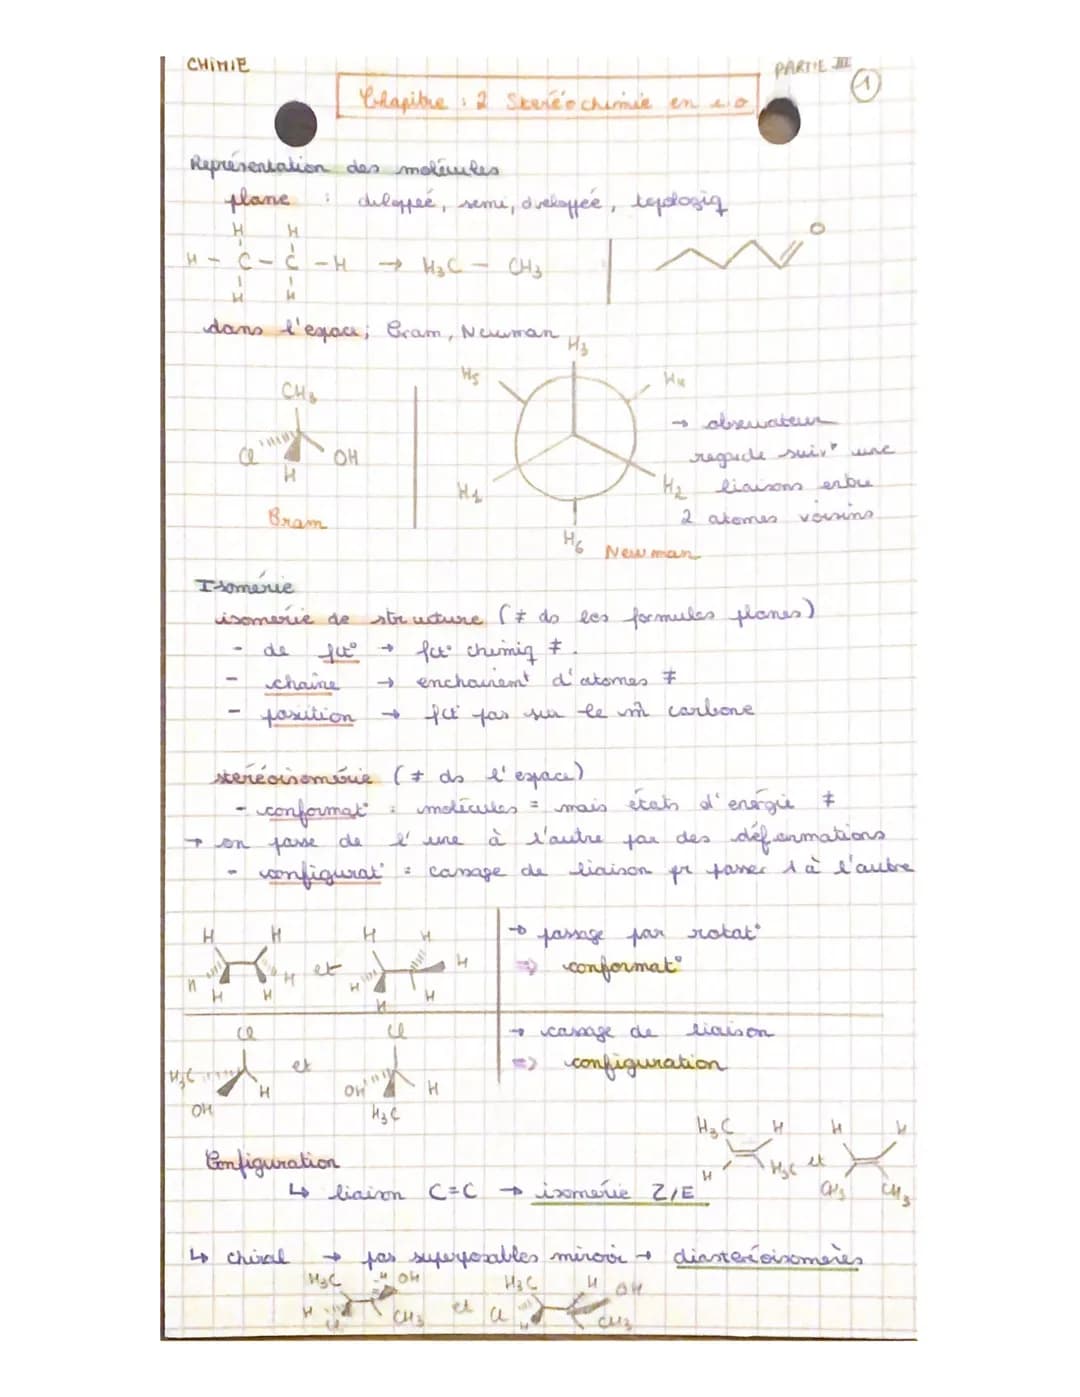 CHIMIE
PARTIE III
1
Chapitre : 2 Steréochimie en c.o
Représentation des molécules
plane : déloppée, semi, dveloppée, topologiq
H H
H - C - C - H → H3C - CH3
H H
O
dans l'espace; Cram, Newman
CH3
Cl OH
H
Cram
H3
H5 H4
H1 H2
H6
Newman
→ observateur
regarde suivt une
liaisons entre
2 atomes voisins
Isomérie
isomérie de structure (≠ ds les formules planes)
- de fct° → fct° chimiq ≠.
- chaine → enchainemt d'atomes ≠
- position → fct° pas sur le m̂ carbone
steréoisomérie (≠ ds l'espace)
- conformat° : molécules = mais états d'énergie ≠
→ on passe de l'une à l'autre par des déformations
- configurat° = cassage de liaison pr passer 1 à l'autre
H H H H
H H et H H
H H H H
→ passage par rotat°
⇒ conformat°
Cl Cl
H3C H et OH H
OH H3C
→ cassage de liaison
⇒ configuration
H3C H H H
H H3C et CH3 CH3
Configuration
↳ liaison C=C → isomérie Z/E
↳ chiral → pas superposables miroir → diasteréoisomères
H3C H OH H3C H OH
H Cl CH3 et Cl H CH3